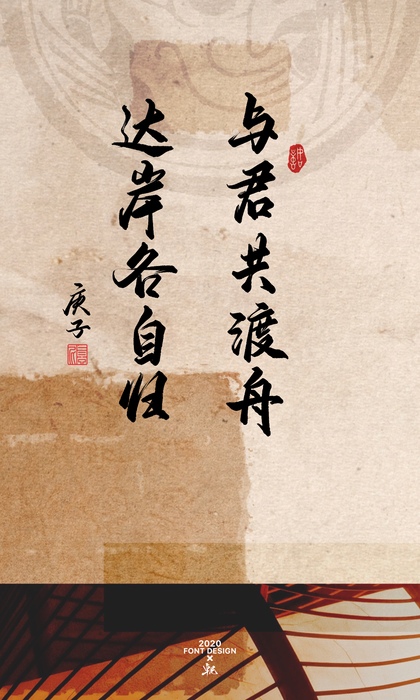 与君共渡舟
达岸各自归
庚子
2020
FONT DESIGN
×